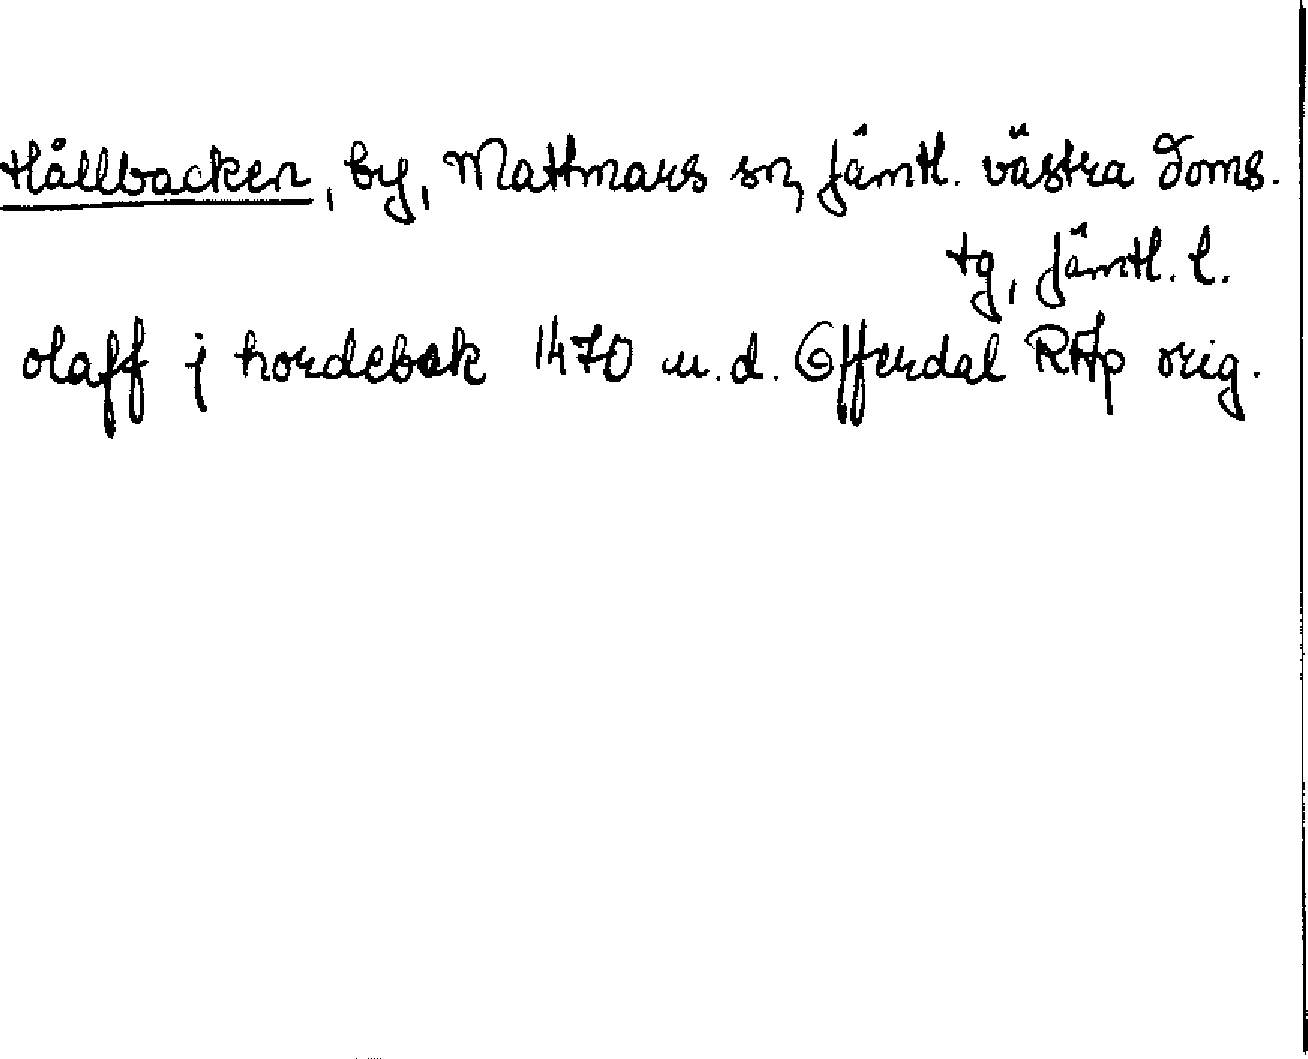 Hållbacken, by, Mattmars sn, Jämtl. västra doms.
tg, Jämtl. l.
olaff j hordebak 1470 u.d. Offerdal RAp orig.